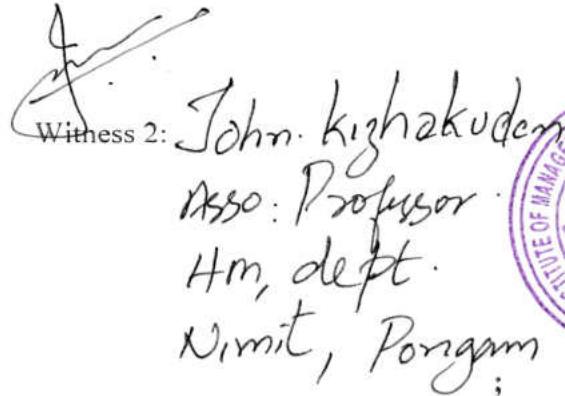 Witness 2: John. Kizhakuden
Asso: Professor.
Hm, dept.
Nimit, Pongam
;
TITUTE OF MANAGE